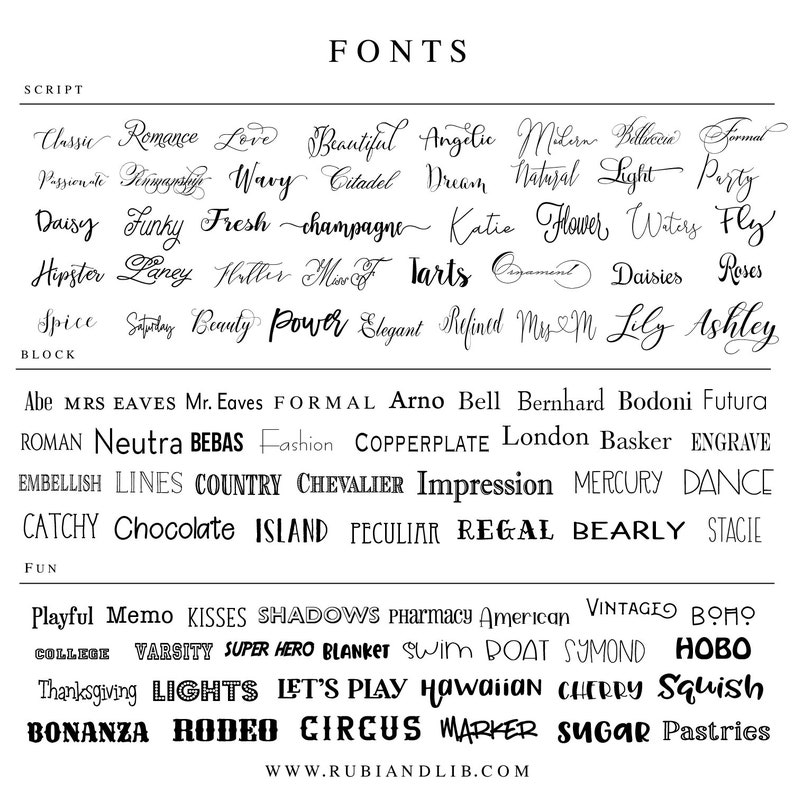 FONTS
SCRIPT
Classic Romance Love Beautiful Angelic Modern Belluccia Formal
Passionate Penmanship Wavy Citadel Dream Natural Light Party
Daisy Funky Fresh champagne Katie Flower Waters Fly
Hipster Laney Flutter Miss F Tarts Ornament Daisies Roses
Spice Saturday Beauty Power Elegant Refined Mrs M Lily Ashley
BLOCK
Abe MRS EAVES Mr. Eaves FORMAL Arno Bell Bernhard Bodoni Futura
ROMAN Neutra BEBAS Fashion COPPERPLATE London Basker ENGRAVE
EMBELLISH LINES COUNTRY CHEVALIER Impression MERCURY DANCE
CATCHY Chocolate ISLAND PECULIAR REGAL BEARLY STACIE
FUN
Playful Memo KISSES SHADOWS PHARMACY American VINTAGE BOHO
COLLEGE VARSITY SUPER HERO BLANKET swim BOAT SYMOND HOBO
Thanksgiving LIGHTS LET'S PLAY HAWAiiAN CHERRY Squish
BONANZA RODEO CIRCUS MARKER SUGAR Pastries
WWW.RUBIANDLIB.COM